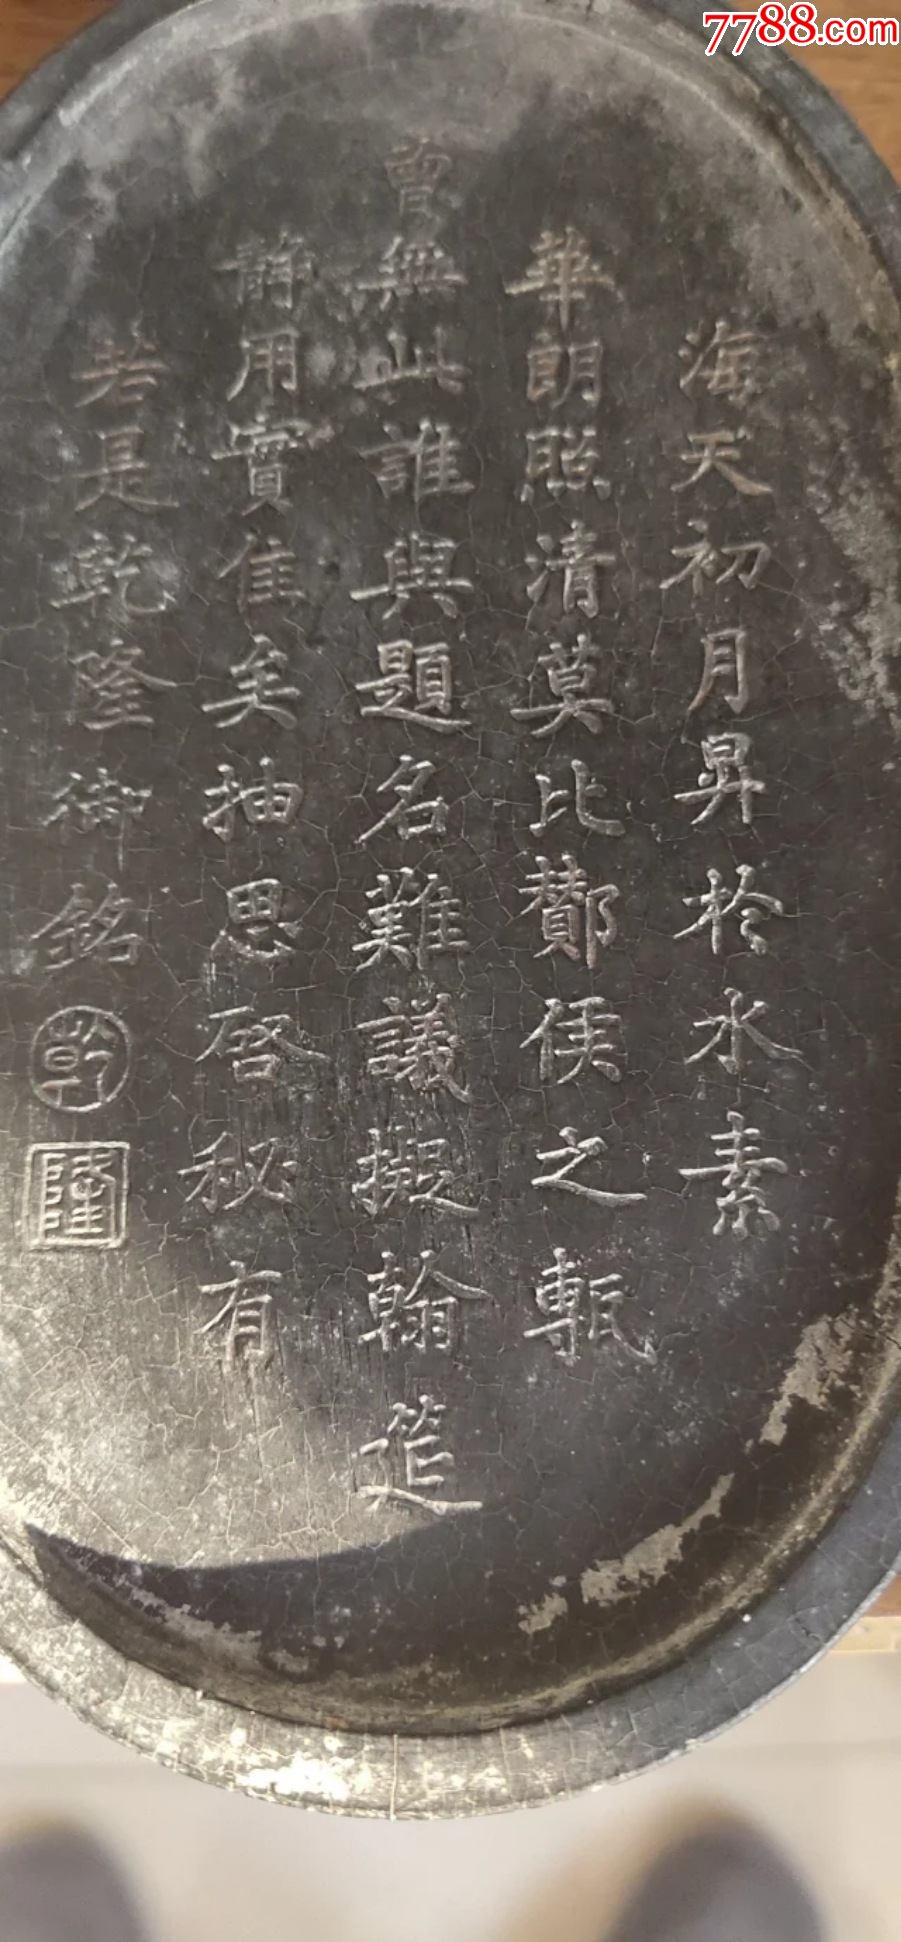 7788.com
海天初月昇於水素
華朗照清莫比鄼侯之甎
曾無此誰與題名難議擬翰筵
靜用實佳矣抽思啓秘有
若是乾隆御銘
乾
隆